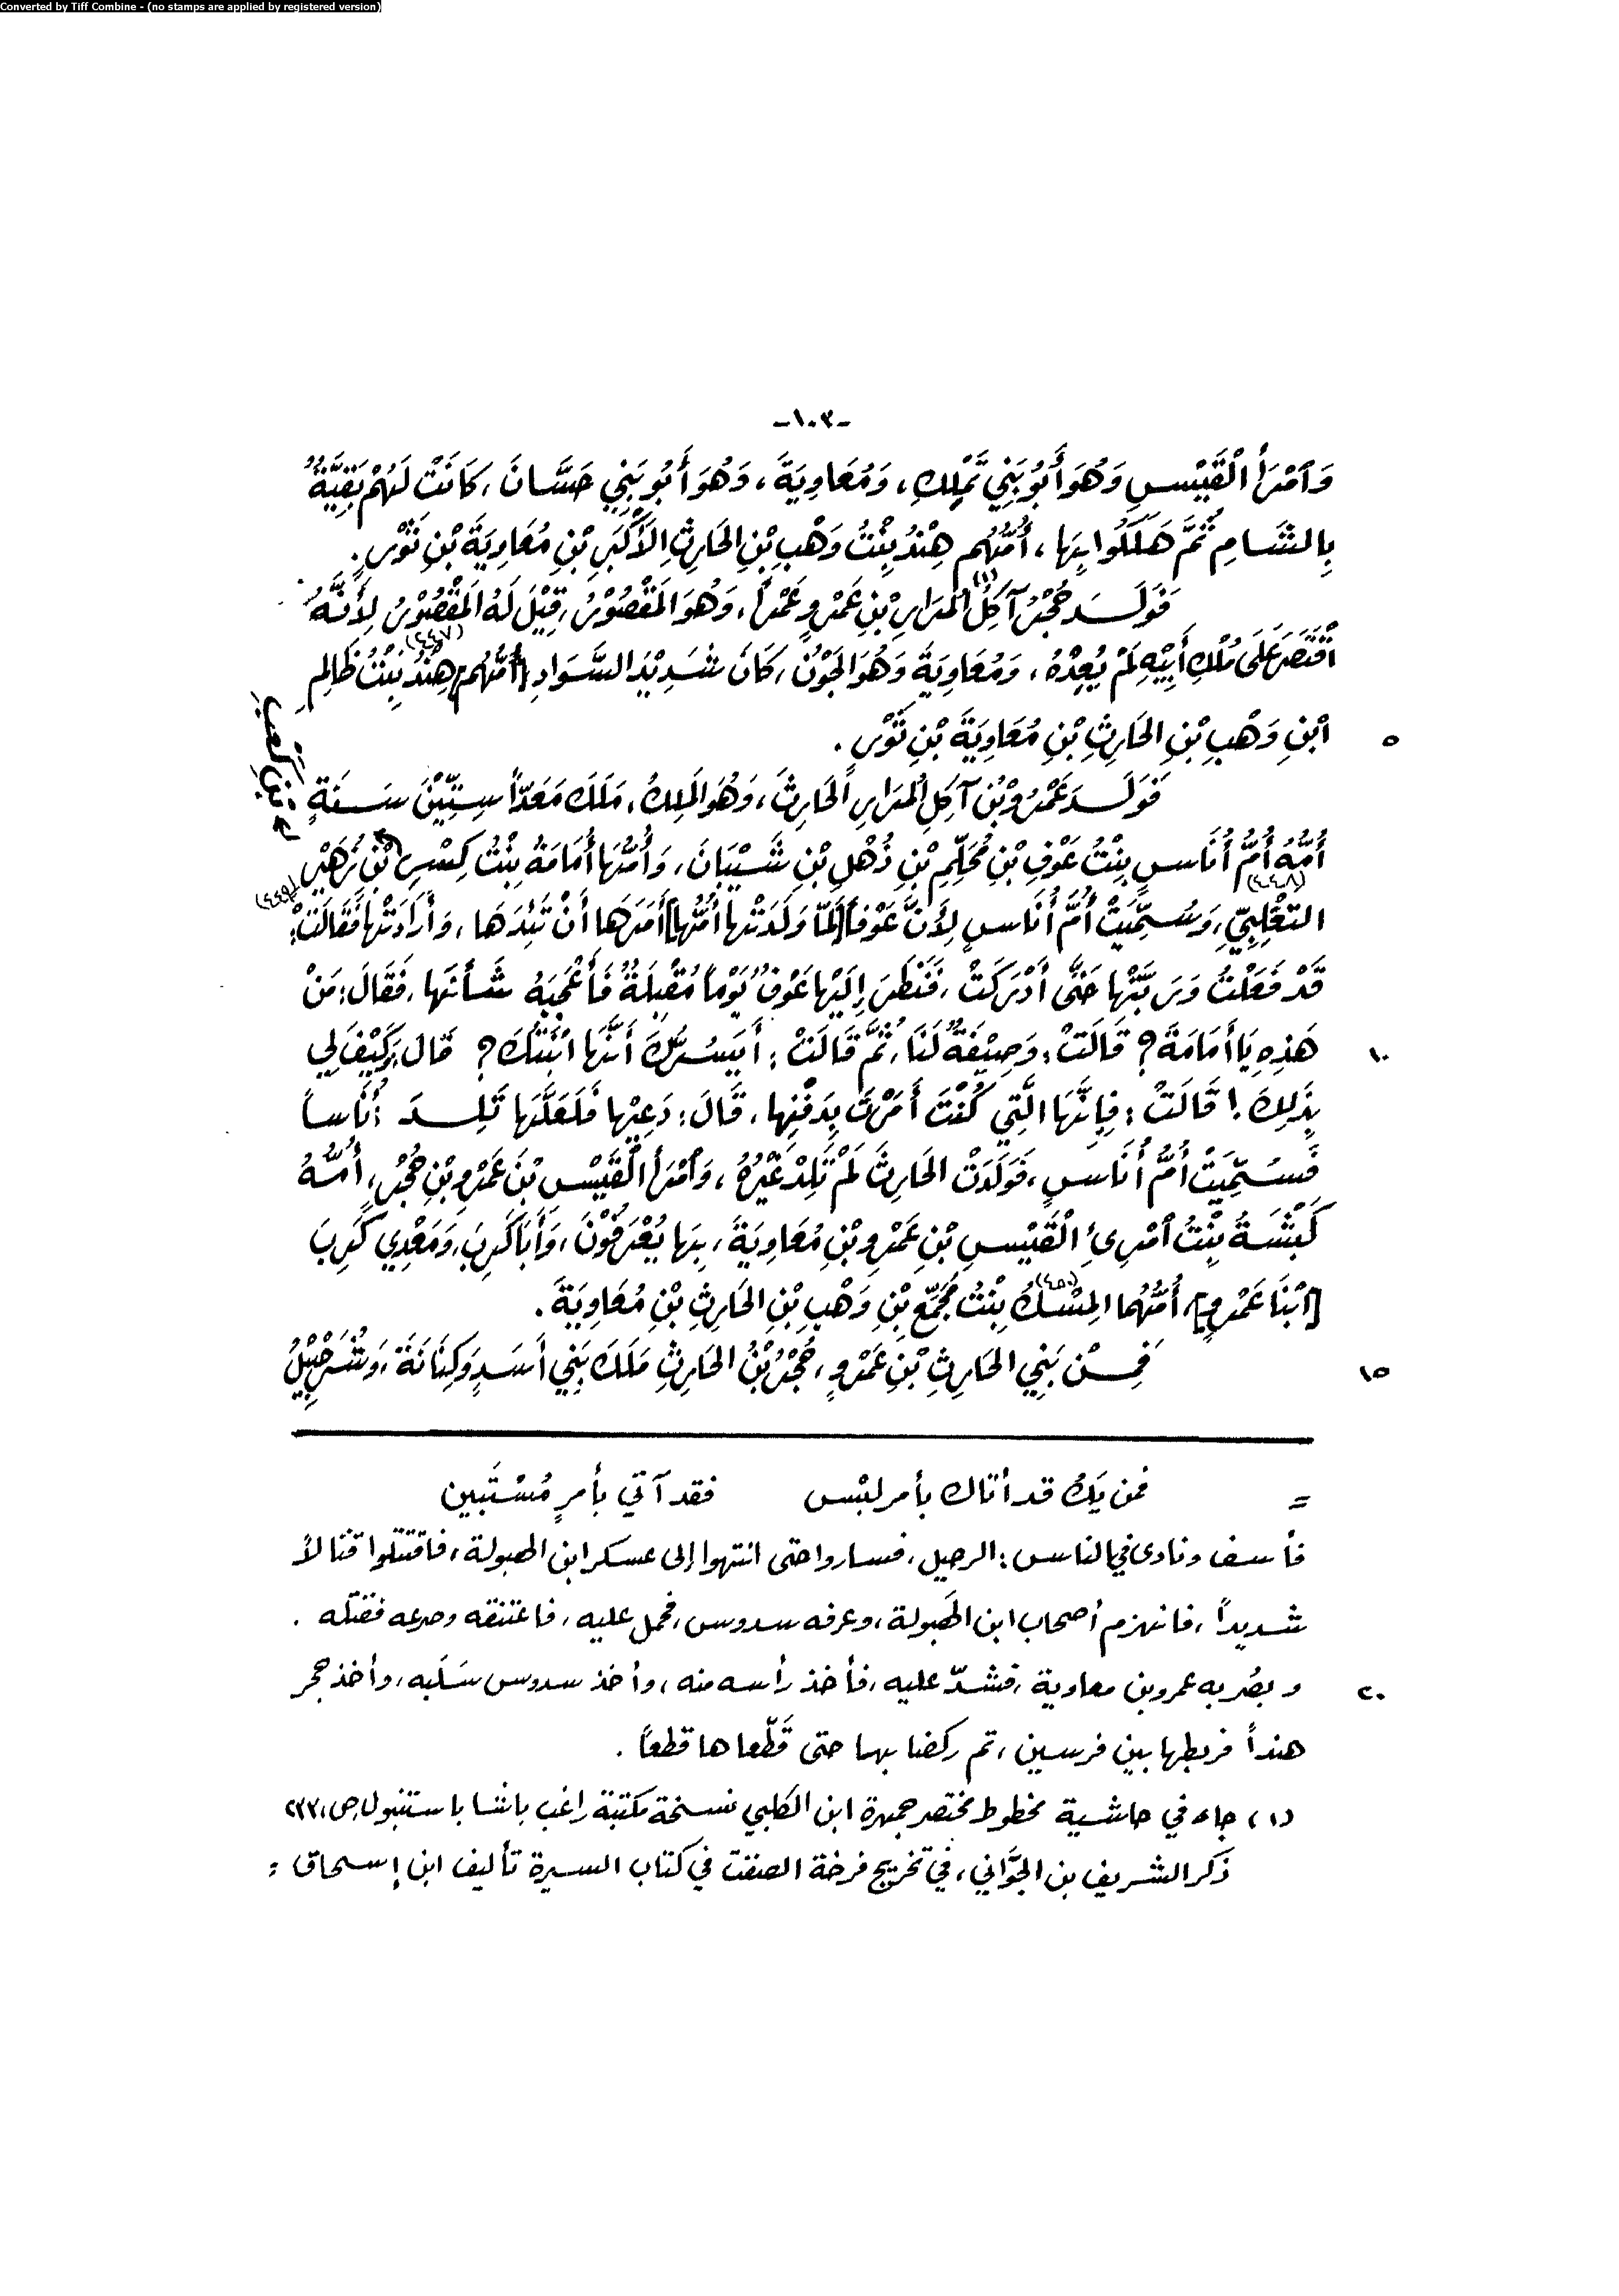 Converted by Tiff Combine - (no stamps are applied by registered version)
-١٠٣-
وَٱمْرَأَ ٱلْقَيْسِ وَهُوَ أَبُو بَنِي تَمْلِكَ، وَمُعَاوِيَةَ، وَهُوَ أَبُو بَنِي حَسَّانَ، كَانَتْ لَهُمْ بَقِيَّةٌ
بِالشَّامِ ثُمَّ هَلَكُوا بِهَا، أُمُّهُم هِنْدُ بِنْتُ وَهْبِ بْنِ الحَارِثِ الأَكْبَرِ بْنِ مُعَاوِيَةَ بْنِ ثَوْرٍ.
فَوَلَدَ حُجْرٌ آكِلُ (١) المُرَارِ بْنِ عَمْرٍو عَمْراً، وَهُوَ المَقْصُوْرُ، قِيْلَ لَهُ المَقْصُوْرُ لِأَنَّهُ
ٱقْتَصَرَ عَلَى مُلْكِ أَبِيْهِ لَمْ يُعِدْهُ، وَمُعَاوِيَةَ وَهُوَ الجَوْنُ، كَانَ شَدِيْدَ السَّوَادِ [أُمُّهُم] هِنْدُ (٤٤٧) بِنْتُ ظَالِمِ
٥ ٱبْنِ وَهْبِ بْنِ الحَارِثِ بْنِ مُعَاوِيَةَ بْنِ ثَوْرٍ.
فَوَلَدَ عَمْرُو بْنُ آكِلِ المُرَارِ الحَارِثَ، وَهُوَ المَلِكُ، مَلَكَ مَعَدّاً سِتِّيْنَ سَنَةٍ
أُمُّهُ أُمُّ أُنَاسٍ (٤٤٨) بِنْتُ عَوْفِ بْنِ مُحَلِّمِ بْنِ ذُهْلِ بْنِ شَيْبَانَ، وَأُمُّهَا أُمَامَةُ بِنْتُ كِسْرِ بْنِ زُهَيْرٍ (٤٤٩)
التَغْلِبِيِّ، وَسُمِّيَتْ أُمَّ أُنَاسٍ لِأَنَّ عَوْفاً [لَمّا وَلَدَتْهَا أُمُّهَا] أَمَرَهَا أَنْ تَئِدَهَا، وَأَرَادَتْهَا فَقَالَتْ:
قَدْ فَعَلْتُ وَرَبَّتْهَا حَتَّى أَدْرَكَتْ، فَنَظَرَ إِلَيْهَا عَوْفٌ يَوْماً مُقْبِلَةً فَأَعْجَبَهُ شَأْنُهَا، فَقَالَ: مَنْ
١٠ هَذِهِ يَا أُمَامَةَ؟ قَالَتْ: وَصِيْفَةٌ لَنَا، ثُمَّ قَالَتْ: أَيَسُرُّكَ أَنَّهَا ٱبْنَتُكَ؟ قَالَ: وَكَيْفَ لِي
بِذَلِكَ! قَالَتْ: فَإِنَّهَا الَّتِي كُنْتَ أَمَرْتَ بِدَفْنِهَا، قَالَ: دَعِيْهَا فَلَعَلَّهَا تَلِدُ أُنَاساً
فَسُمِّيَتْ أُمَّ أُنَاسٍ، فَوَلَدَتْ الحَارِثَ لَمْ تَلِدْ غَيْرَهُ، وَٱمْرَأَ ٱلْقَيْسِ بْنَ عَمْرِو بْنِ حُجْرٍ، أُمُّهُ
كَبْشَةُ بِنْتُ ٱمْرِئِ ٱلْقَيْسِ بْنِ عَمْرِو بْنِ مُعَاوِيَةَ، بِهَا يُعْرَفُوْنَ، وَأَبَا كَرِبَ، وَمَعْدِي كَرِبَ
[ٱبْنَا عَمْرٍو]، أُمُّهُما المِسْكُ (٤٥٠) بِنْتُ مُجَمِّعِ بْنِ وَهْبِ بْنِ الحَارِثِ بْنِ مُعَاوِيَةَ.
١٥ فَمِنْ بَنِي الحَارِثِ بْنِ عَمْرٍو، حُجْرُ بْنُ الحَارِثِ مَلَكَ بَنِي أَسَدٍ وَكِنَانَةَ، وَشُرَحْبِيْلُ
= فمن يَكُ قد أتاك بأمر لبْس فقد آتي بأمرٍ مُسْتَبين
فأسف ونادى في الناس: الرحيل، فساروا حتى انتهوا إلى عسكر ابن الهبولة، فاقتتلوا قتالاً
شديداً، فانهزم أصحاب ابن الهَبولة، وعرفه سدوس، فحمل عليه، فاعتنقه وصرعه فقتله.
٢٠ وبصُر به عمرو بن معاوية، فشدّ عليه، فأخذ رأسه منه، وأخذ سدوس سَلَبه، وأخذ حجر
هنداً فربطها بين فرسين، ثم ركضا بها حتى قَطَّعاها قطعاً.
(١) جاء في حاشية مخطوط مختصر جمهرة ابن الكلبي نسخة مكتبة راغب باشا باستنبول ص، ٢٣٣
ذكر الشريف بن الجوَّاني، في تخريج فرخة الصنفت في كتاب السيرة تأليف ابن إسحاق =